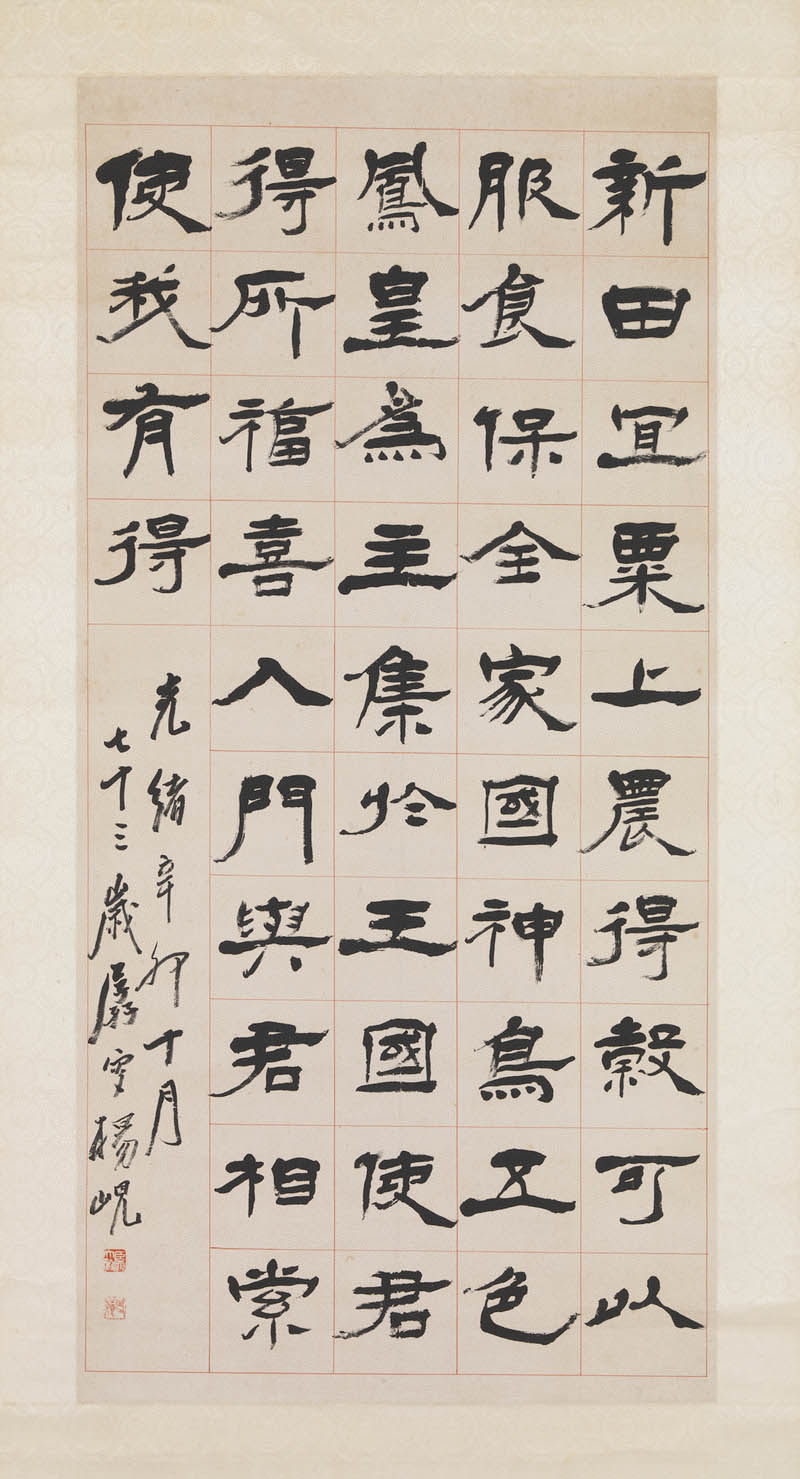 新田宜粟上農得穀可以
服食保全家國神鳥五色
鳳皇為主集於王國使君
得所福喜入門與君相索
使我有得
光緒辛卯十月
七十三歲孱守楊峴